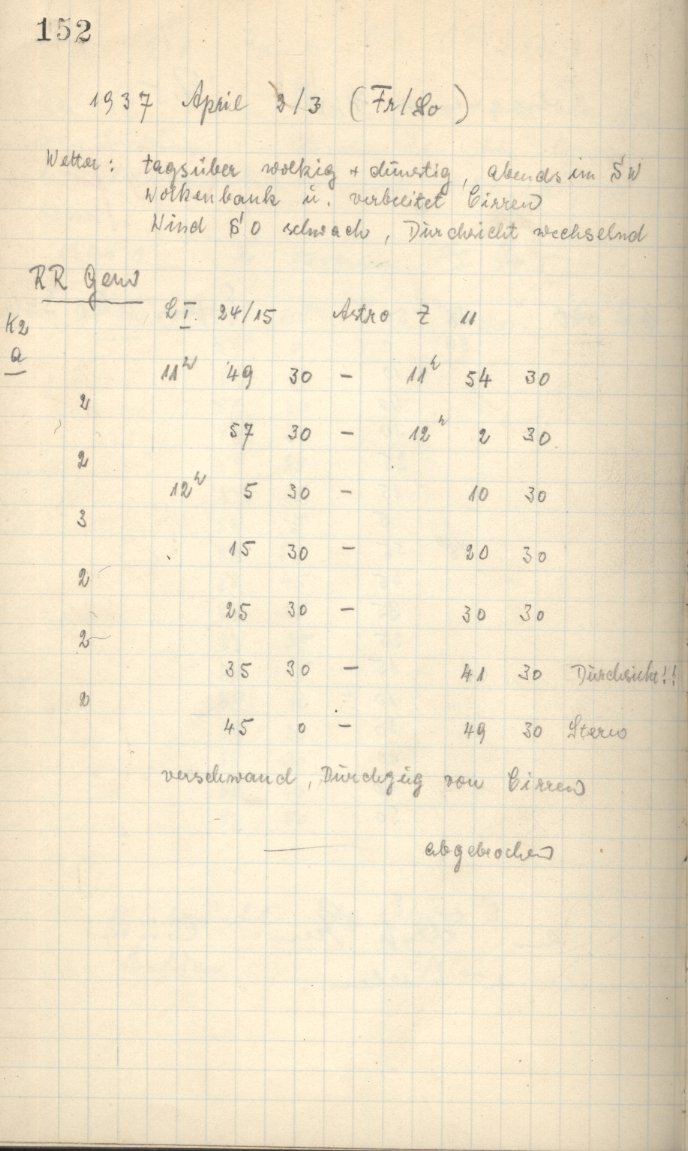 152
1937 April 2/3 (Fr/So)
Wetter: tagsüber wolkig + dunstig, abends im SW
Wolkenbank u. verbreitet Cirren
Wind SO schwach, Durchsicht wechselnd
RR Gem
L I. 24/15 Astro Z 11
K2
a
11h 49 30 – 11h 54 30
2
57 30 – 12h 2 30
2
12h 5 30 – 10 30
3
15 30 – 20 30
2
25 30 – 30 30
2
35 30 – 41 30 Durchsicht!!
2
45 0 – 49 30 Stern
verschwand, Durchzug von Cirren
abgebrochen